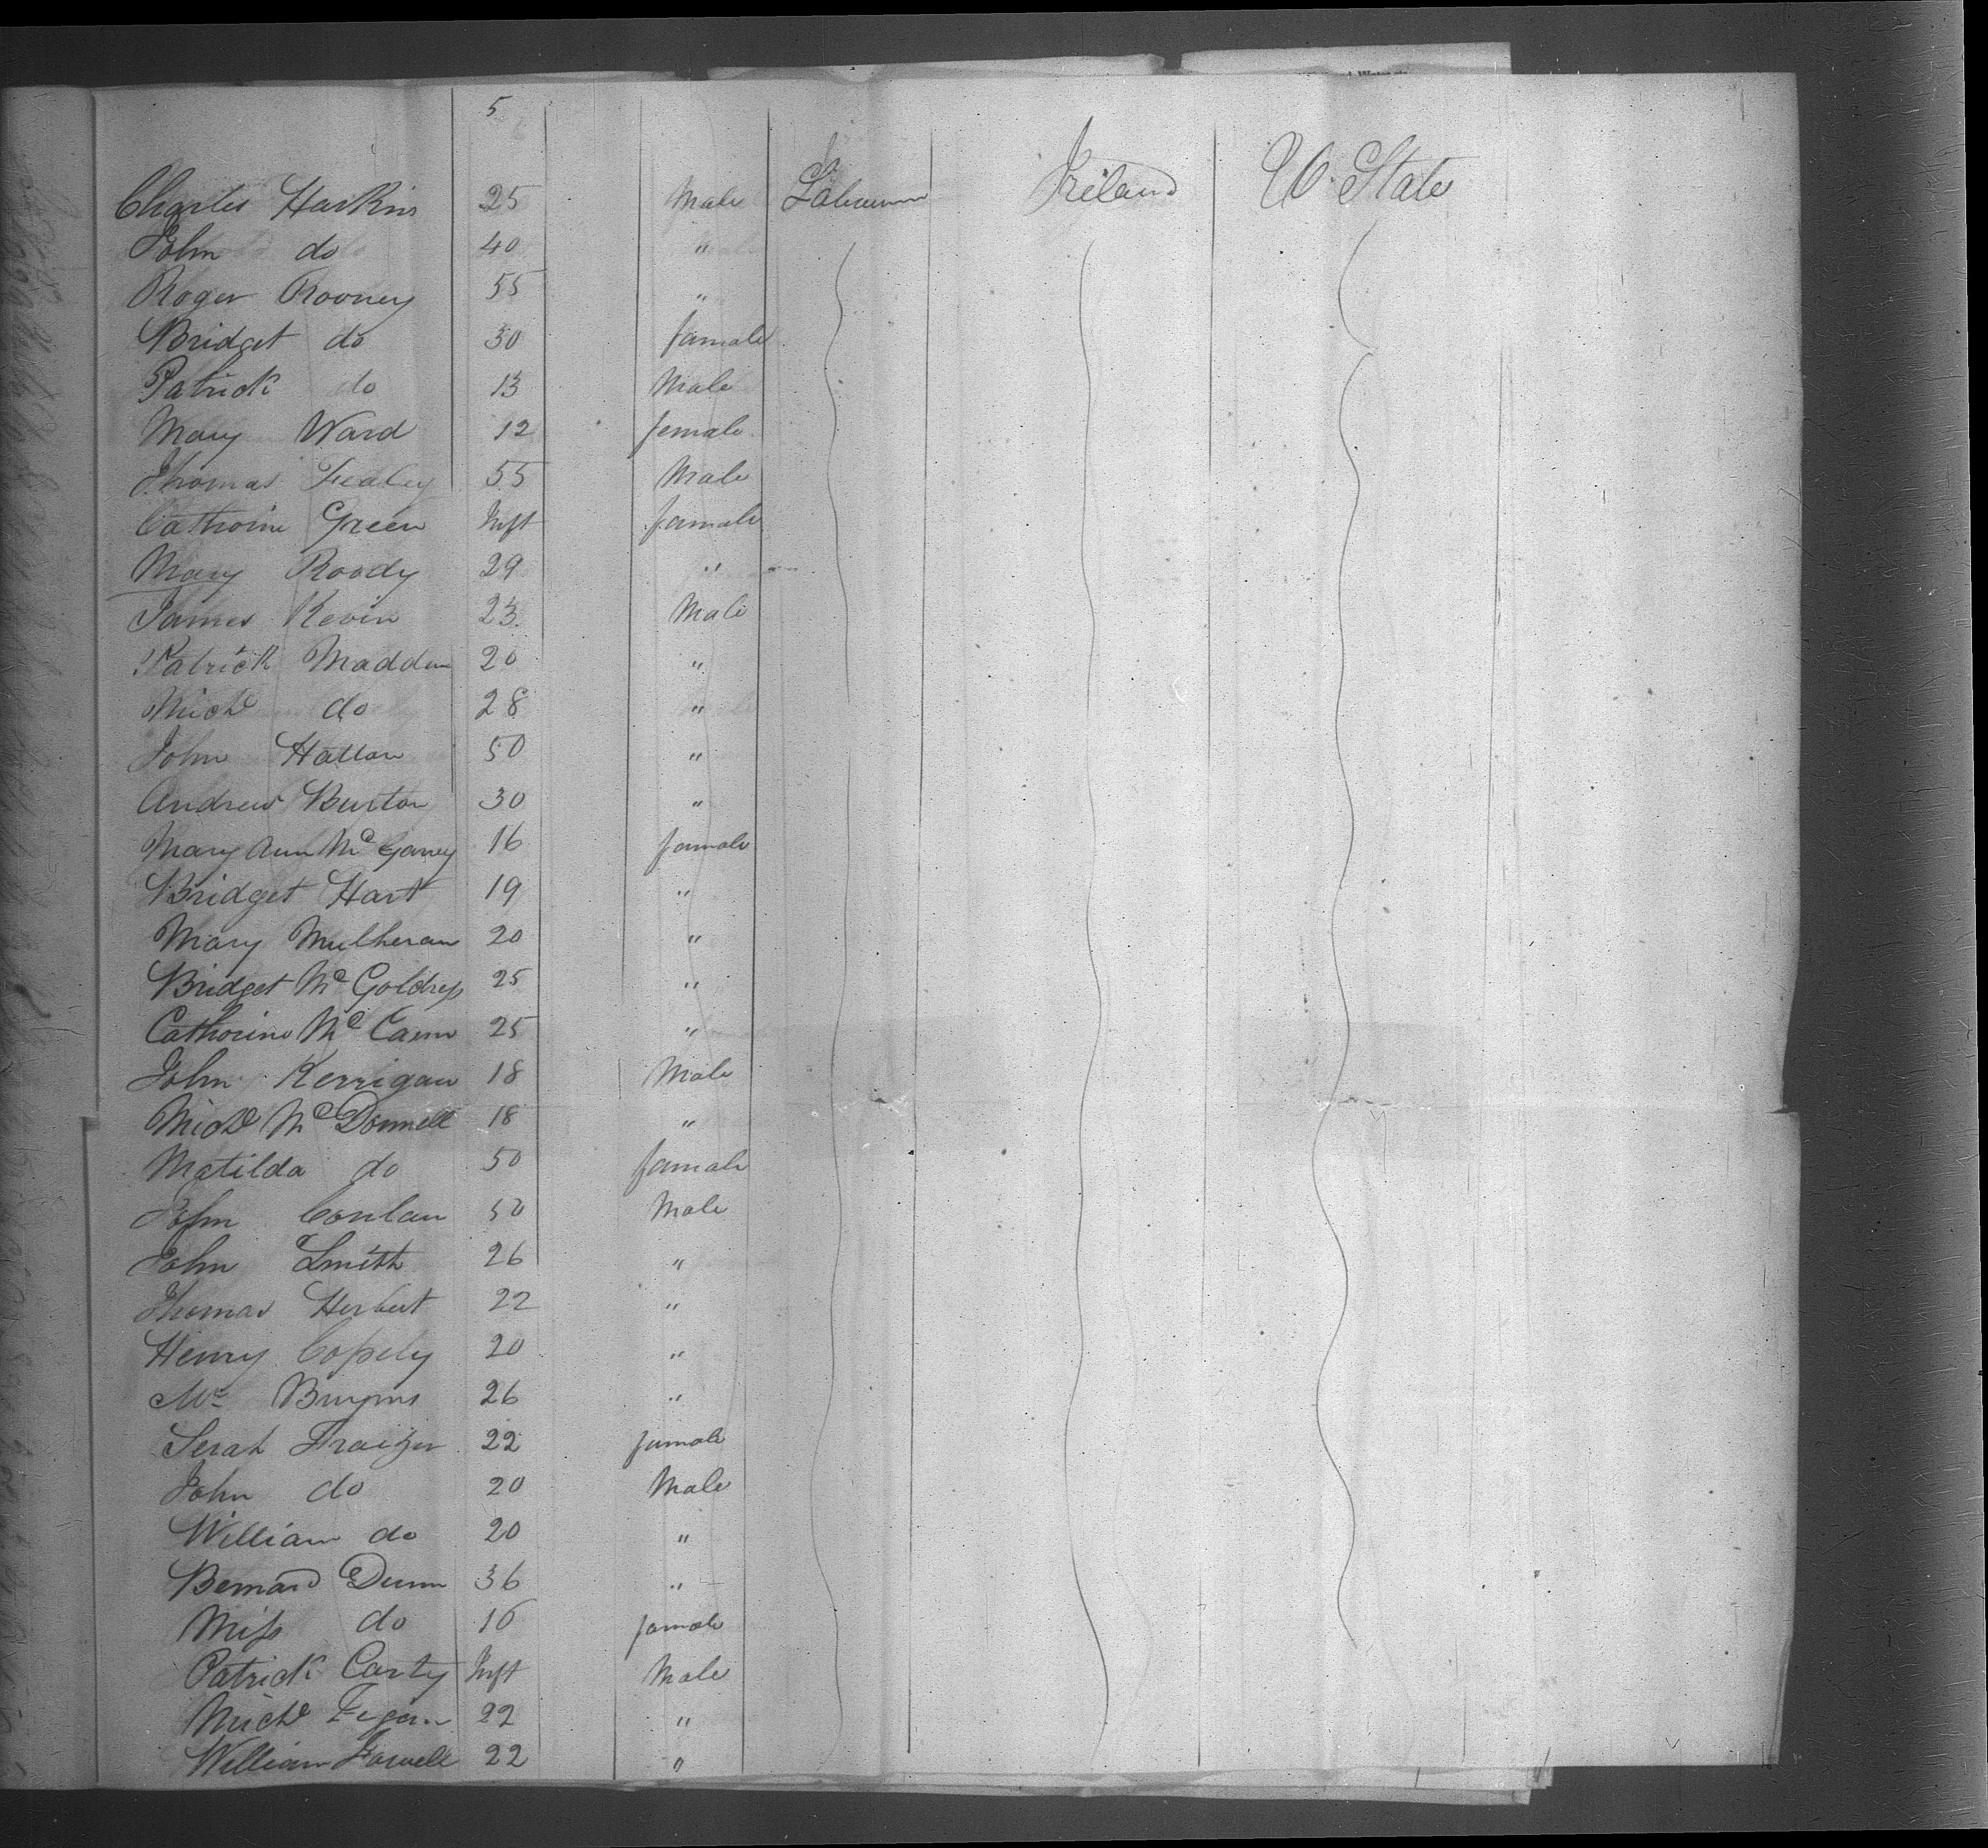 5
Charles Harkins 25 Male Labourer Ireland U. States
John do 40 "
Roger Rooney 55 "
Bridget do 30 female
Patrick do 13 Male
Mary Ward 12 female
Thomas 55 Male
Catherine Green Inft female
Mary Roody 29 "
James Kevin 23 Male
Patrick Madden 20 "
Michl do 28 "
John Hallon 50 "
Andrew Burton 30 "
Mary Ann McGarvey 16 female
Bridget Hart 19 "
Mary Mulheran 20 "
Bridget McGoldrick 25 "
Catherine McCann 25 "
John Kerrigan 18 Male
Michl McDonnell 18 "
Matilda do 50 female
John Conlan 50 Male
John Smith 26 "
Thomas Herbert 22 "
Henry Copely 20 "
Mr 26 "
Serah Fraizer 22 female
John do 20 Male
William do 20 "
Bernard Dunn 36 "
Miss do 16 female
Patrick Carty Inft Male
Michl Fegan 22 "
William 22 "